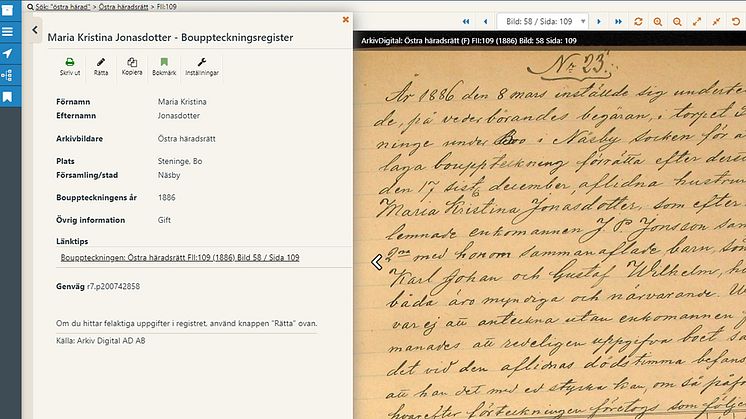 Sök: "östra härad" > Östra häradsrätt > FII:109
Maria Kristina Jonasdotter - Bouppteckningsregister
Skriv ut
Rätta
Kopiera
Bokmärk
Inställningar
Förnamn Maria Kristina
Efternamn Jonasdotter
Arkivbildare Östra häradsrätt
Plats Steninge, Bo
Församling/stad Näsby
Bouppteckningens år 1886
Övrig information Gift
Länktips
Bouppteckning: Östra häradsrätt FII:109 (1886) Bild 58 / Sida 109
Genväg r7.p200742858
Om du hittar felaktiga uppgifter i registret, använd knappen "Rätta" ovan.
Källa: Arkiv Digital AD AB
Bild: 58 / Sida: 109
ArkivDigital: Östra häradsrätt (F) FII:109 (1886) Bild: 58 Sida: 109
No 23.
År 1886 den 8 mars instälde sig underte
de, på vederbörandes begäran, i torpet
ninge under Boo i Näsby socken för a
laga bouppteckning förrätta efter ders
den 17 sistl december, aflidna hustru
Maria Kristina Jonasdotter, som efter
lemnade enkomannen J. P. Jonsson sam
2ne med honom sammanaflade barn, sön
Karl Johan och Gustaf Wilhelm, h
båda äro myndiga och närvarande. U
var ej att anteckna utan enkomannen
manades att redeligen uppgifva boet sa
det vid den aflidnas dödstimma befans
att han det med ed styrka kan, om så påfo
hvarefter förteckningen företogs som följer